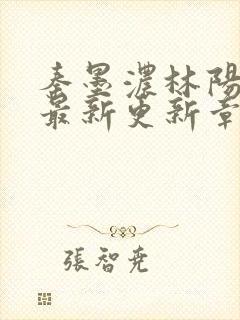 秦墨濃林陽
最新更新章
張智堯